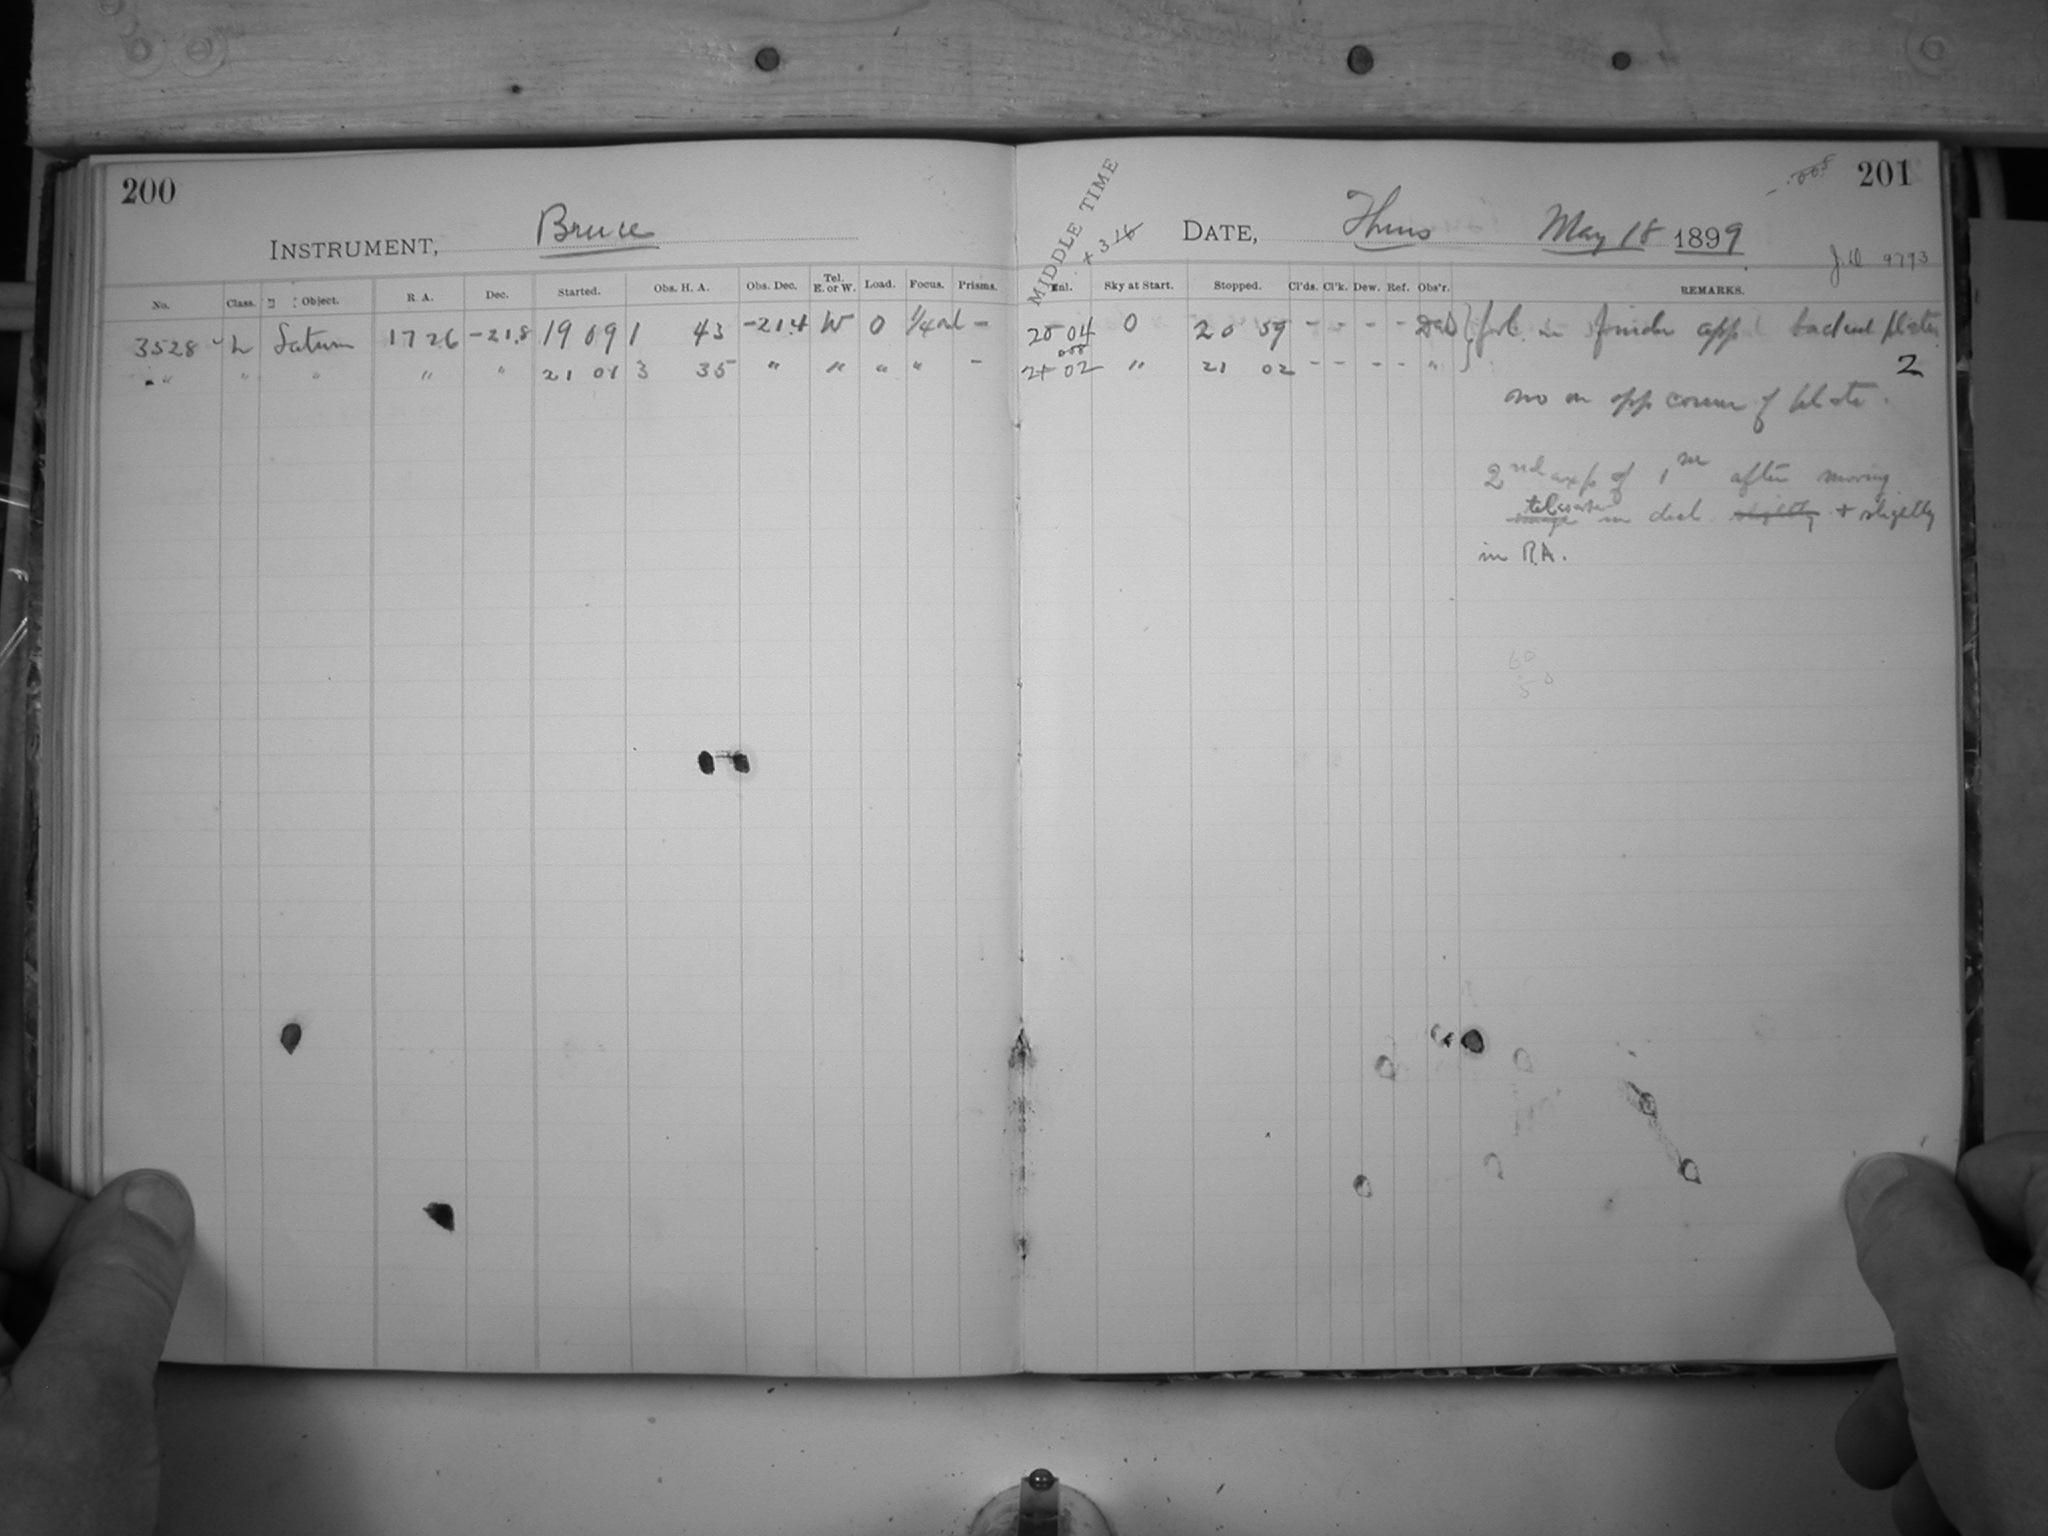 200
INSTRUMENT, Bruce
No. Class. Object. R. A. Dec. Started. Obs. H. A. Obs. Dec. Tel. E. or W. Load. Focus. Prisms.
3528 L Saturn 17 26 -21.8 19 09 1 43 -21.4 W 0 -
" " " " " 21 01 3 35 " " " " -
201
MIDDLE TIME
DATE, Thurs May 18 1899
J.D 9793
Enl. Sky at Start. Stopped. Cl'ds. Cl'k. Dew. Ref. Obs'r. REMARKS.
20 04 0 20 59 - - - - in finder app plate
21 02 " 21 02 - - - - " 2
no on opp corner of plate.
2nd exp of 1m after moving
telescope in decl. slightly + slightly
in R.A.
60
50